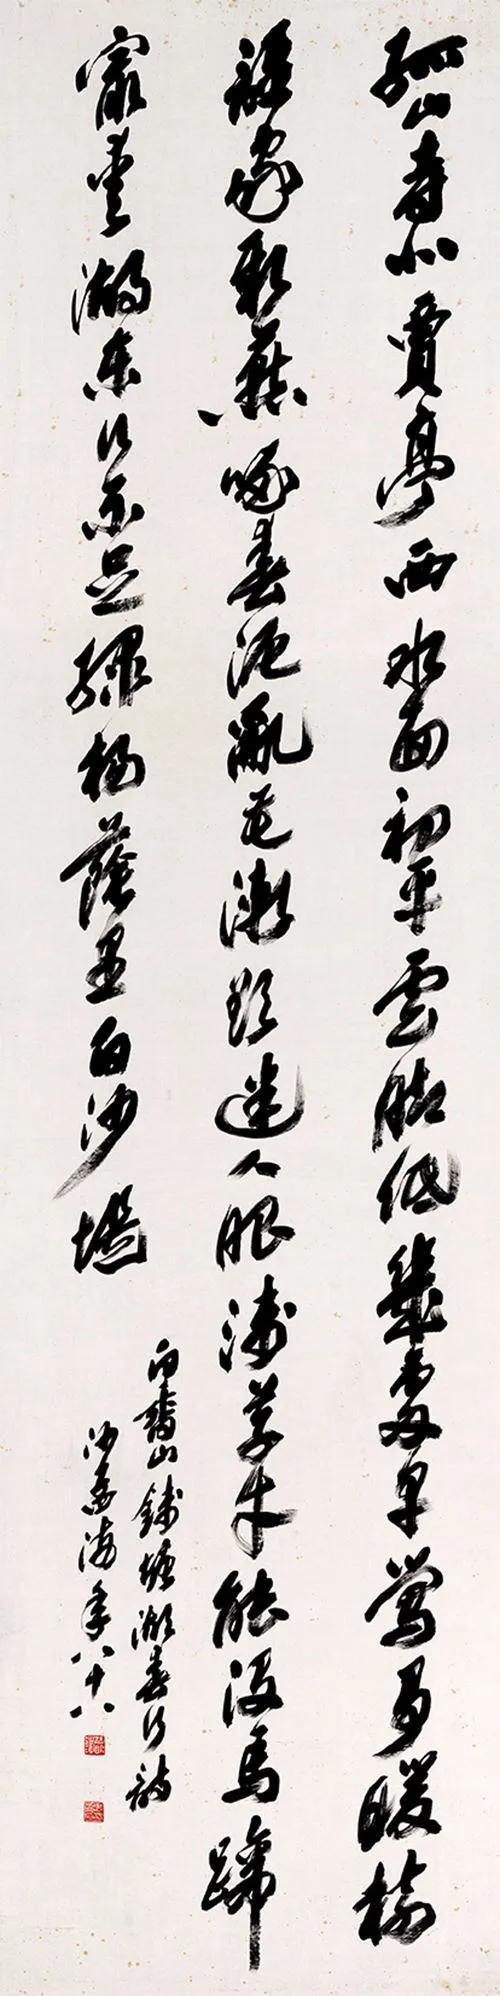 孤山寺北賈亭西水面初平雲腳低幾處早鶯爭暖樹
誰家新燕啄春泥亂花漸欲迷人眼淺草才能沒馬蹄
最愛湖東行不足綠楊蔭里白沙堤
白香山錢塘湖春行詩
沙孟海年八十八